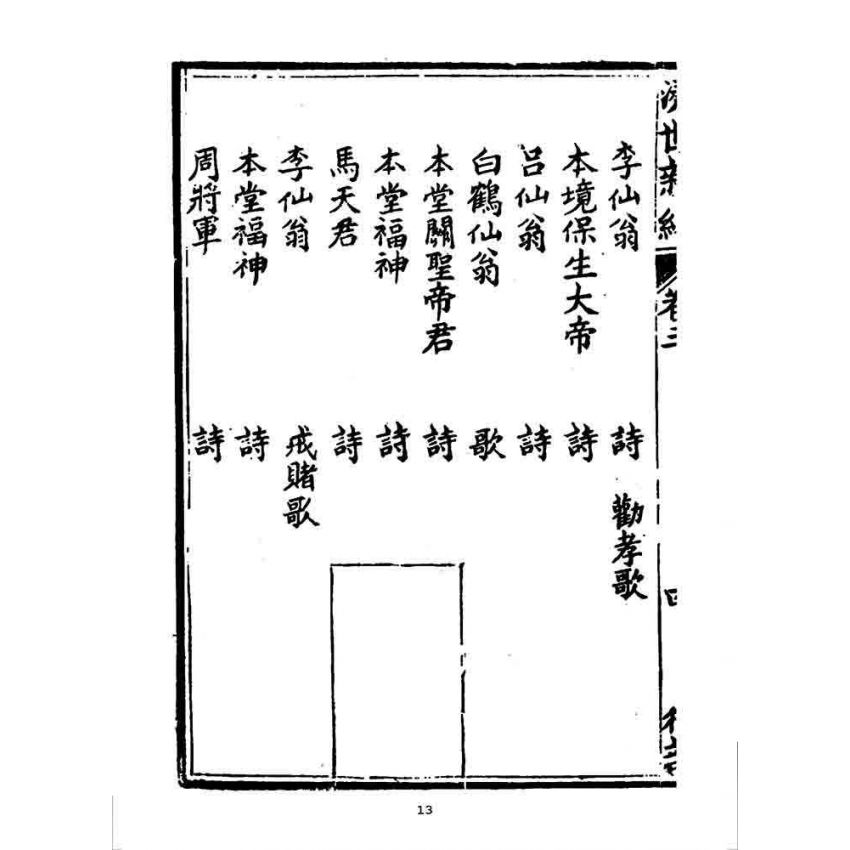 世新
卷三
四
李仙翁 詩 勸孝歌
本境保生大帝 詩
呂仙翁 詩
白鶴仙翁 歌
本堂關聖帝君 詩
本堂福神 詩
馬天君 詩
李仙翁 戒賭歌
本堂福神 詩
周將軍 詩
13